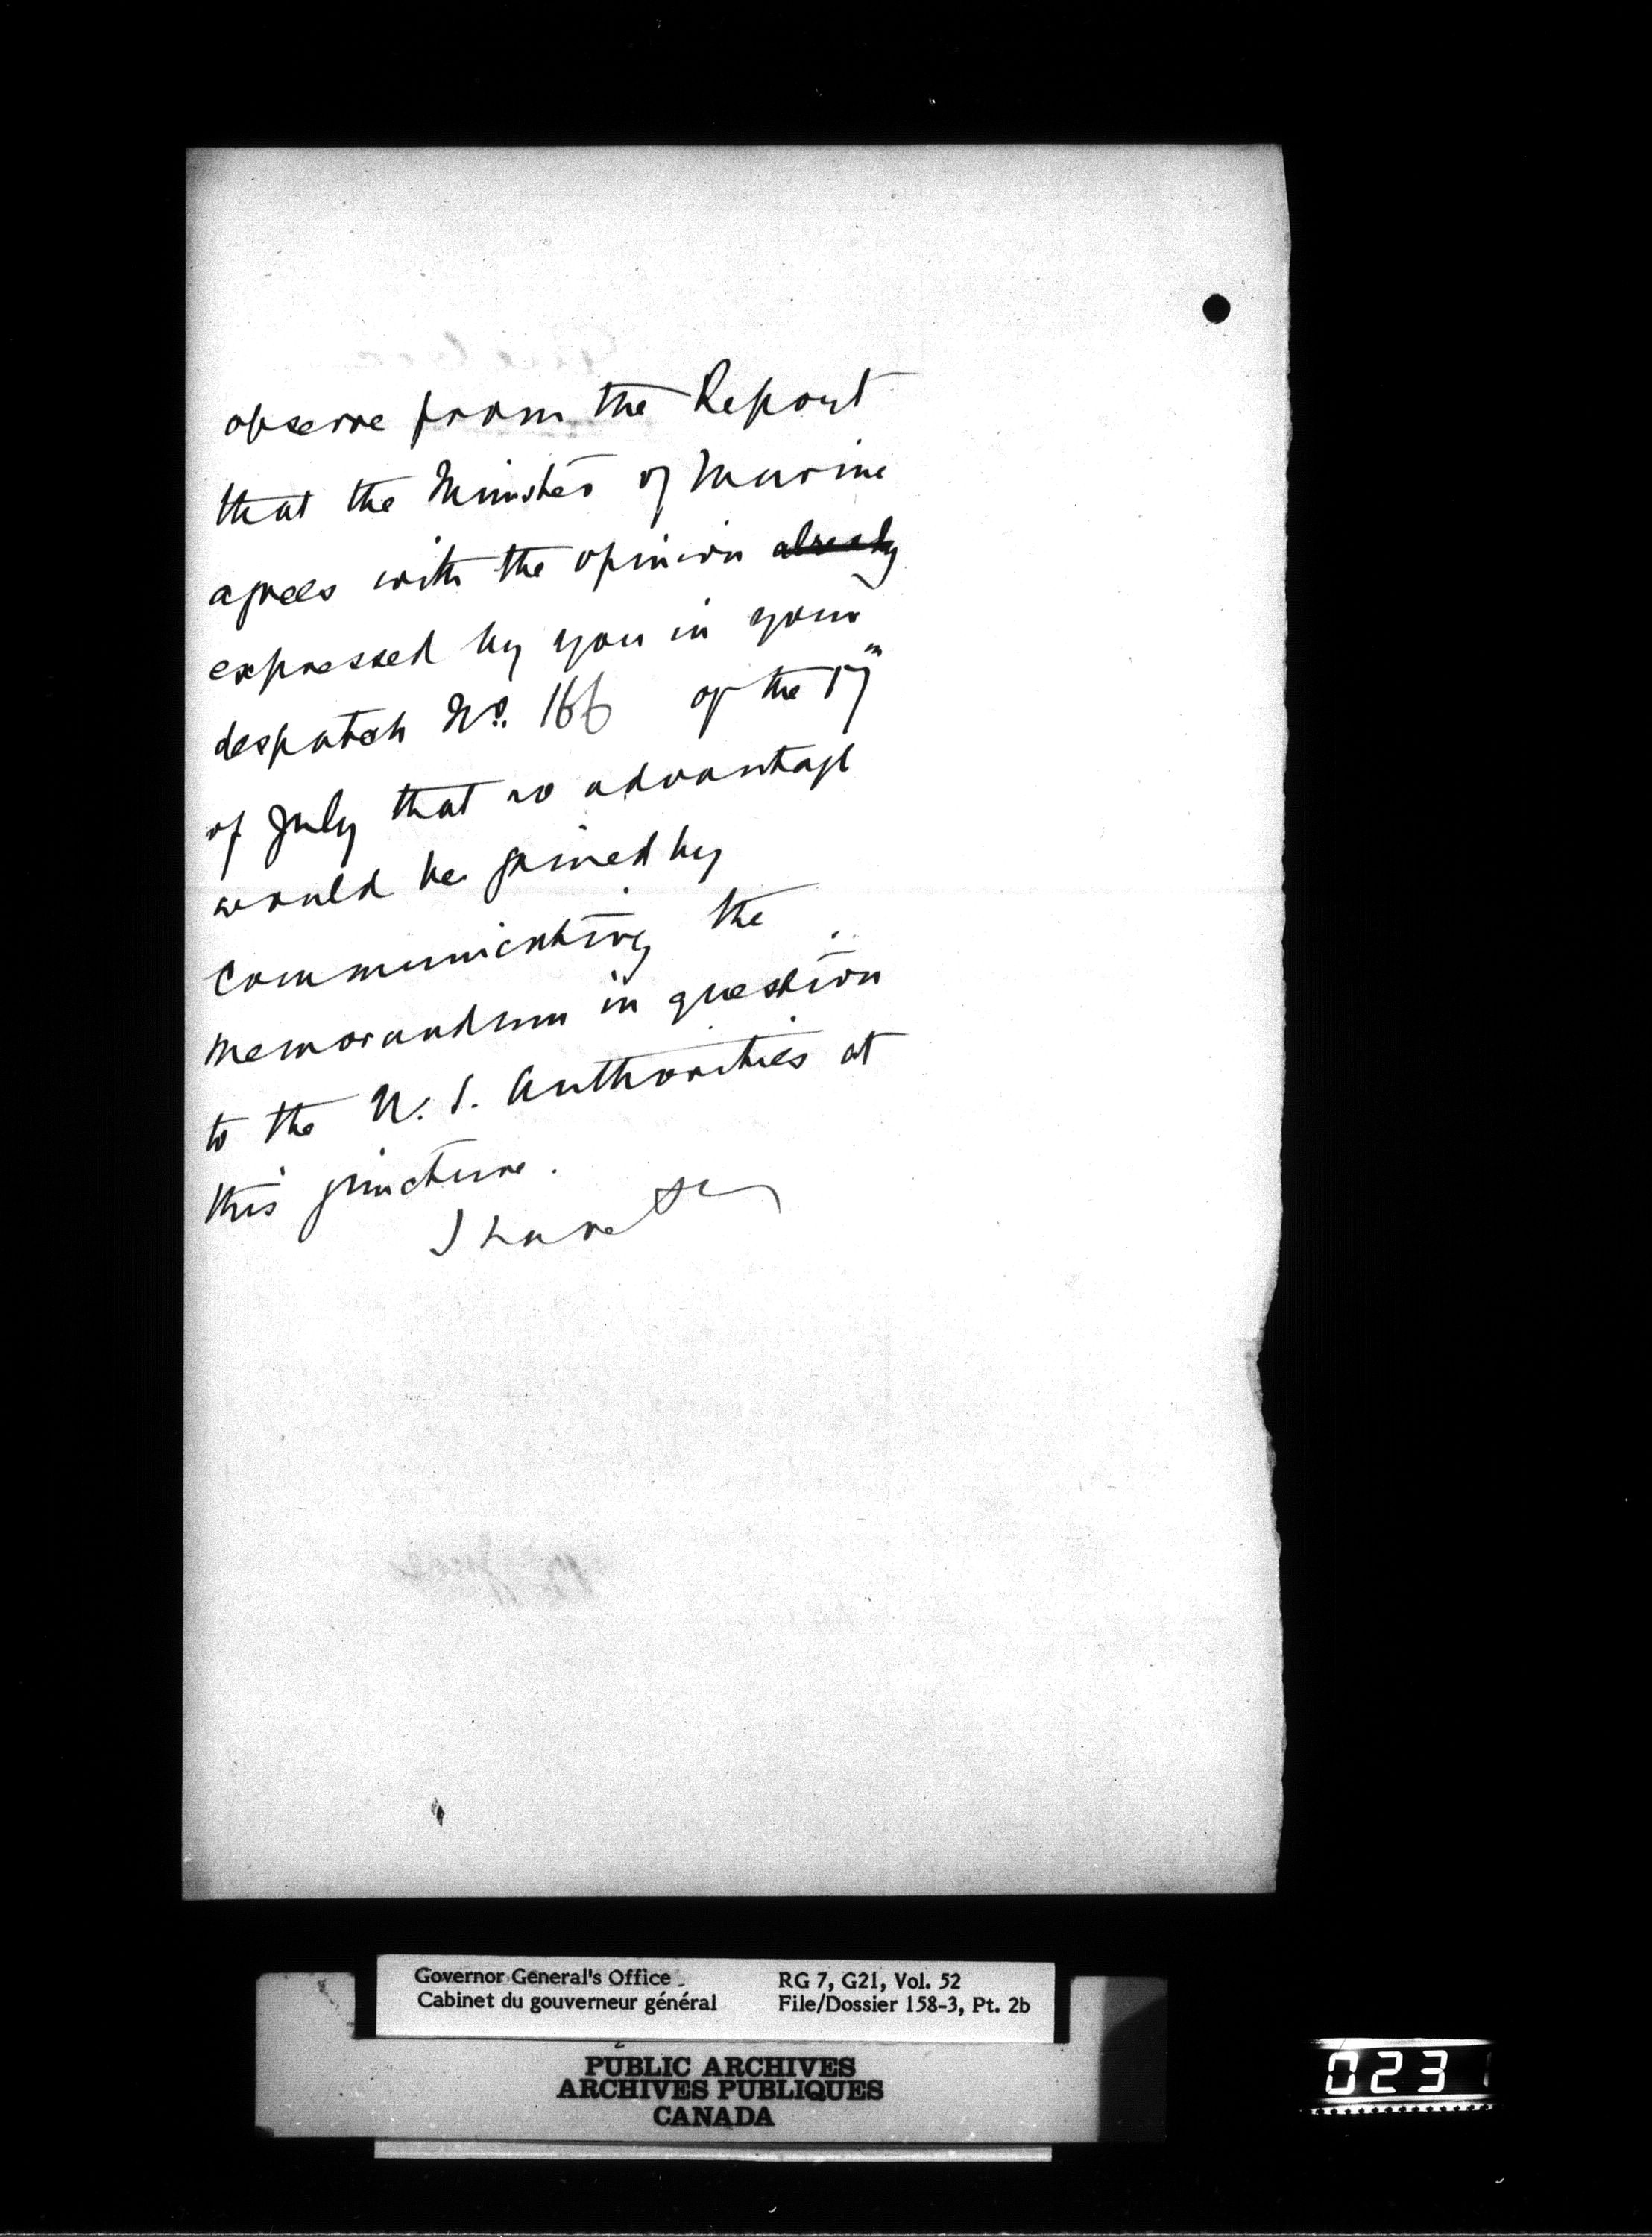 observe from the Report
that the Minister of Marine
agrees with the opinion already
expressed by you in your
despatch No. 166 of the 17th
of July that no advantage
would be gained by
communicating the
memorandum in question
to the U. S. Authorities at
this juncture.
I have
Governor General's Office
Cabinet du gouverneur général
RG 7, G21, Vol. 52
File/Dossier 158-3, Pt. 2b
PUBLIC ARCHIVES
ARCHIVES PUBLIQUES
CANADA
023